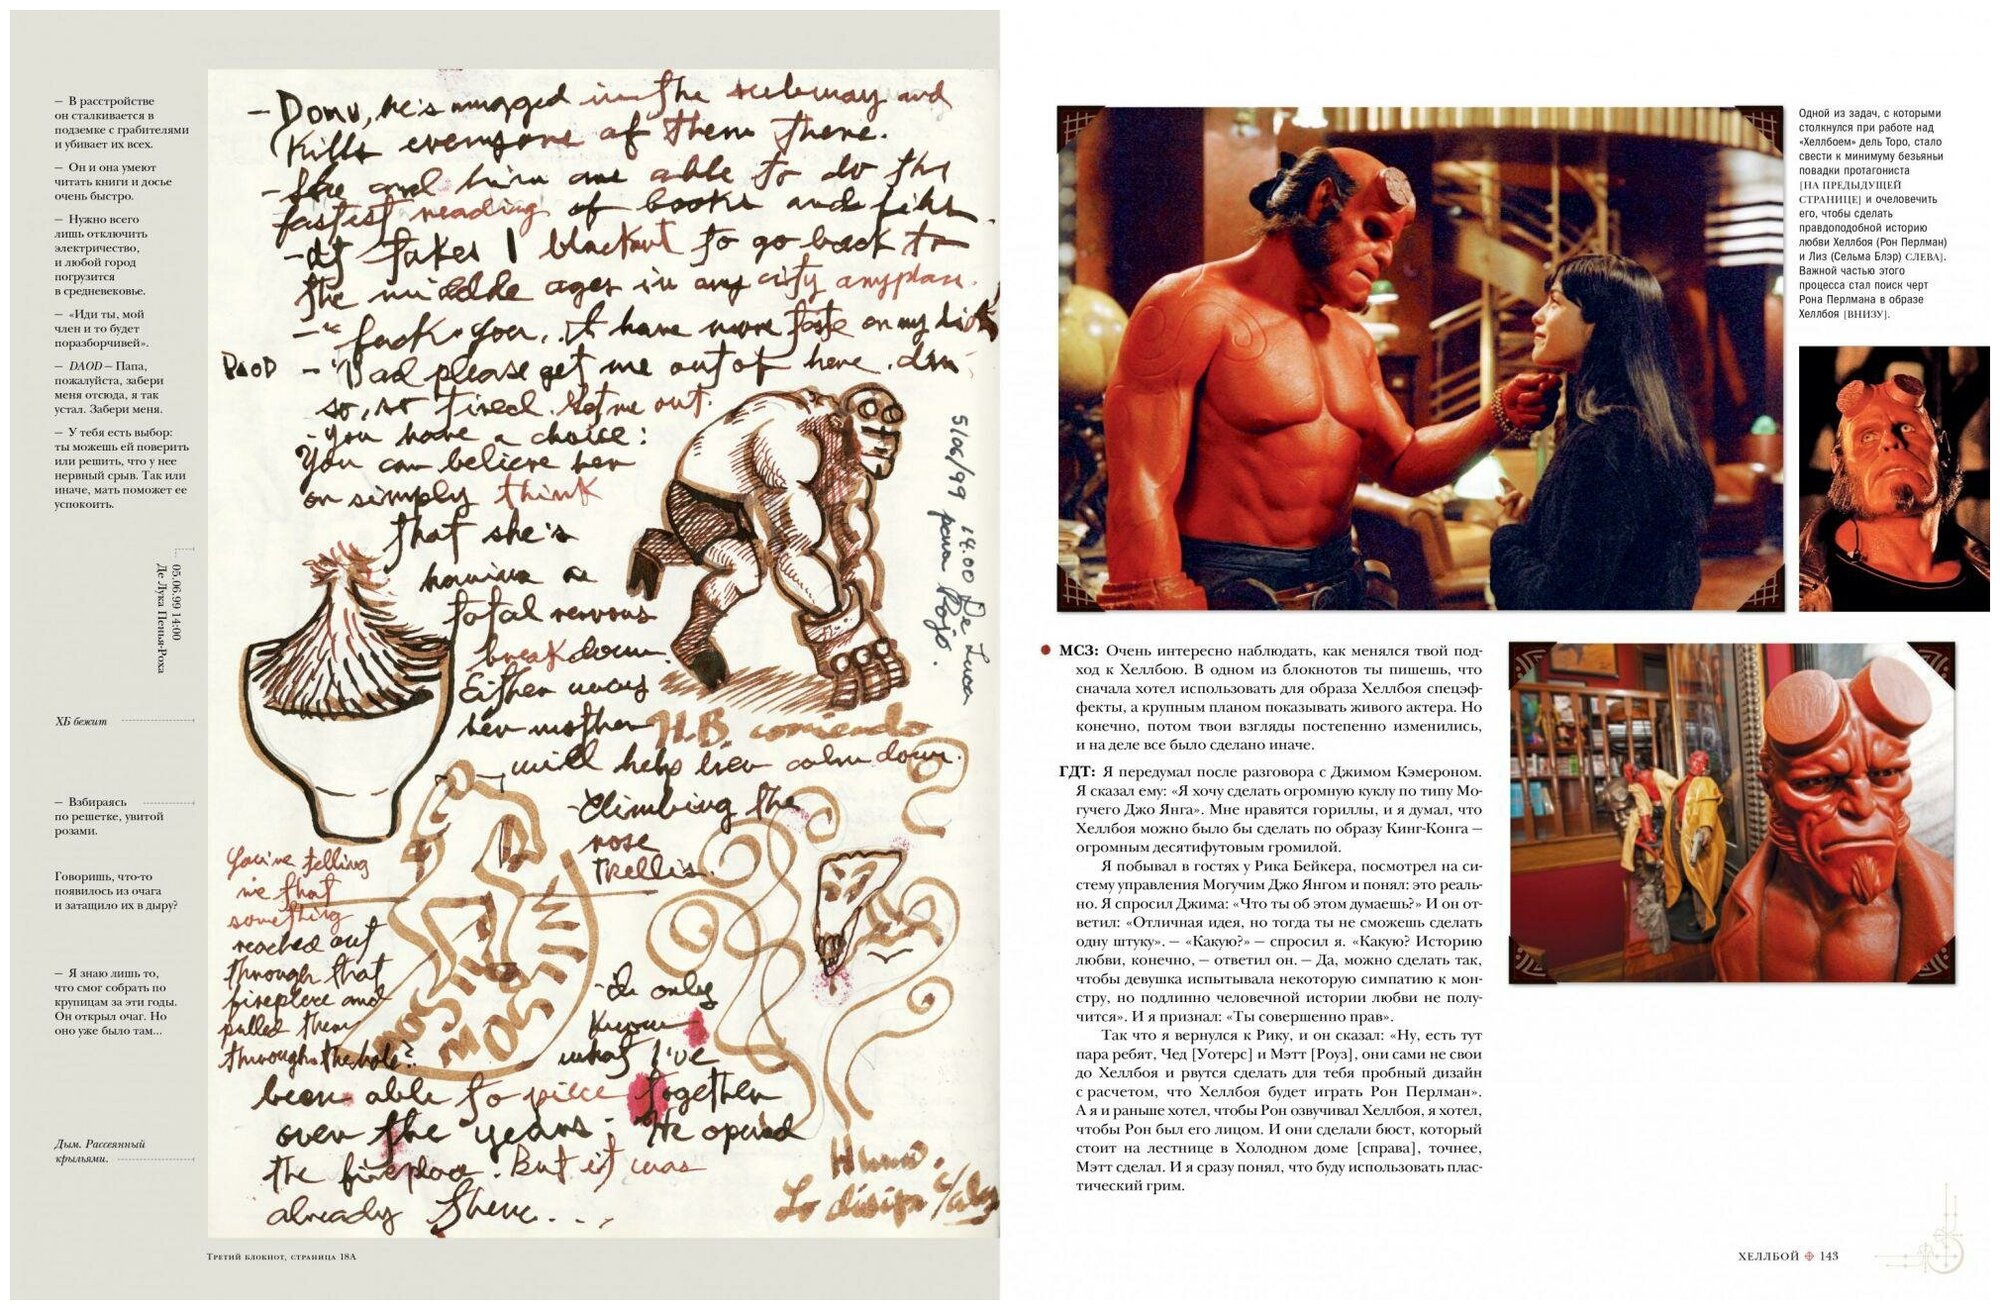 — В расстройстве
он сталкивается в
подземке с грабителями
и убивает их всех.
— Он и она умеют
читать книги и досье
очень быстро.
— Нужно всего
лишь отключить
электричество,
и любой город
погрузится
в средневековье.
— «Иди ты, мой
член и то будет
поразборчивей».
— DAOD — Папа,
пожалуйста, забери
меня отсюда, я так
устал. Забери меня.
— У тебя есть выбор:
ты можешь ей поверить
или решить, что у нее
нервный срыв. Так или
иначе, мать поможет ее
успокоить.
05.06.99 14:00
Де Лука Пенья-Роха
ХБ бежит
— Взбираясь
по решетке, увитой
розами.
Говоришь, что-то
появилось из очага
и затащило их в дыру?
— Я знаю лишь то,
что смог собрать по
крупицам за эти годы.
Он открыл очаг. Но
оно уже было там...
Дым. Рассеянный
крыльями.
- Domu, he's mugged in the subway and
kills everyone of them there.
- She and him are able to do the
fastest reading of books and files.
- It takes 1 blackout to go back to
the middle ages in any city anyplace.
- "fuck you, I have more taste on my dick
DAOD - "Dad please get me out of here. I'm
so, so tired. Get me out.
- You have a choice:
You can believe her
or simply think
that she's
having a
total nervous
breakdown.
Either way
her mother
will help her calm down.
5/06/99 14:00 De Luca
pena Rojo.
H.B. corriendo
- Climbing the
rose
trellis.
You're telling
me that
something
reached out
through that
fireplace and
pulled them
through the hole?
- I only
know
what I've
been able to piece together
over the years - He opened
the fireplace. But it was
already there...
Humo.
Lo disipa c/alas
Третий блокнот, страница 18А
Одной из задач, с которыми
столкнулся при работе над
«Хеллбоем» дель Торо, стало
свести к минимуму безьяньи
повадки протагониста
[НА ПРЕДЫДУЩЕЙ
СТРАНИЦЕ] и очеловечить
его, чтобы сделать
правдоподобной историю
любви Хеллбоя (Рон Перлман)
и Лиз (Сельма Блэр) СЛЕВА].
Важной частью этого
процесса стал поиск черт
Рона Перлмана в образе
Хеллбоя [ВНИЗУ].
МСЗ: Очень интересно наблюдать, как менялся твой под-
ход к Хеллбою. В одном из блокнотов ты пишешь, что
сначала хотел использовать для образа Хеллбоя спецэф-
фекты, а крупным планом показывать живого актера. Но
конечно, потом твои взгляды постепенно изменились,
и на деле все было сделано иначе.
ГДТ: Я передумал после разговора с Джимом Кэмероном.
Я сказал ему: «Я хочу сделать огромную куклу по типу Мо-
гучего Джо Янга». Мне нравятся гориллы, и я думал, что
Хеллбоя можно было бы сделать по образу Кинг-Конга —
огромным десятифутовым громилой.
Я побывал в гостях у Рика Бейкера, посмотрел на си-
стему управления Могучим Джо Янгом и понял: это реаль-
но. Я спросил Джима: «Что ты об этом думаешь?» И он от-
ветил: «Отличная идея, но тогда ты не сможешь сделать
одну штуку». — «Какую?» — спросил я. «Какую? Историю
любви, конечно, — ответил он. — Да, можно сделать так,
чтобы девушка испытывала некоторую симпатию к мон-
стру, но подлинно человечной истории любви не полу-
чится». И я признал: «Ты совершенно прав».
Так что я вернулся к Рику, и он сказал: «Ну, есть тут
пара ребят, Чед [Уотерс] и Мэтт [Роуз], они сами не свои
до Хеллбоя и рвутся сделать для тебя пробный дизайн
с расчетом, что Хеллбоя будет играть Рон Перлман».
А я и раньше хотел, чтобы Рон озвучивал Хеллбоя, я хотел,
чтобы Рон был его лицом. И они сделали бюст, который
стоит на лестнице в Холодном доме [справа], точнее,
Мэтт сделал. И я сразу понял, что буду использовать плас-
тический грим.
ХЕЛЛБОЙ 143